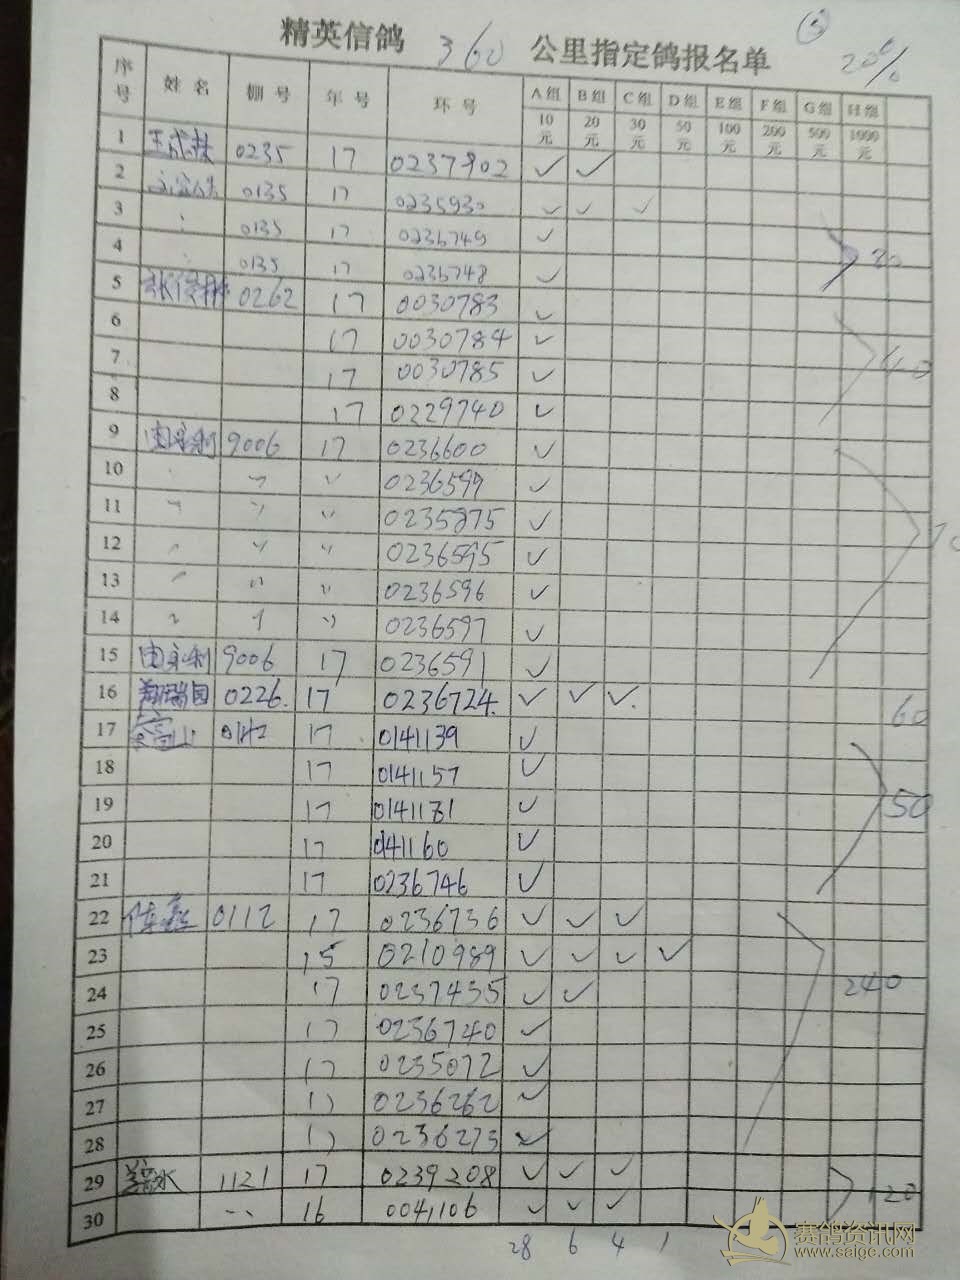 ⑤
精英信鸽 360 公里指定鸽报名单 20%
序号 姓名 棚号 年号 环号 A组 B组 C组 D组 E组 F组 G组 H组
10元 20元 30元 50元 100元 200元 500元 1000元
1 王成林 0235 17 0237902 ✓ ✓
2 0135 17 0235930 ✓ ✓ ✓
3 0135 17 0236749 ✓
4 0135 17 0236748 ✓
5 0262 17 0030783 ✓
6 17 0030784 ✓
7 17 0030785 ✓ 40
8 17 0229740 ✓
9 由永利 9006 17 0236600 ✓
10 〃 〃 0236599 ✓
11 〃 〃 〃 0235875 ✓
12 〃 〃 〃 0236595 ✓
13 〃 〃 〃 0236596 ✓
14 〃 〃 〃 0236597 ✓
15 由永利 9006 17 0236591 ✓
16 0226. 17 0236724. ✓ ✓ ✓. 60
17 0142 17 0141139 ✓
18 17 0141157 ✓
19 17 0141181 ✓ 50
20 17 0141160 ✓
21 17 0236746 ✓
22 陈磊 0112 17 0236736 ✓ ✓ ✓
23 15 0210989 ✓ ✓ ✓ ✓
24 17 0237455 ✓ ✓ 240
25 17 0236740 ✓
26 17 0235072 ✓
27 17 0236262 ✓
28 17 0236273 ✓
29 1121 17 0239208 ✓ ✓ ✓
30 〃 16 0041106 ✓ ✓ ✓ 120
28 6 4 1
赛鸽资讯网
www.saigc.com